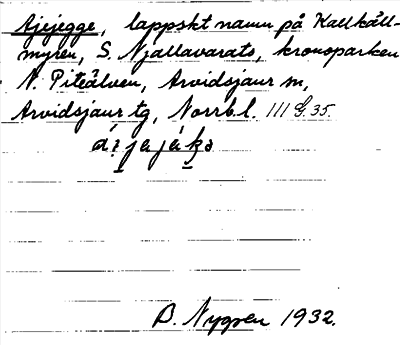 Ajejegge, lappskt namn på Kallkåll-
myren, S. Njallavarats, kronoparken
N. Piteälven, Arvidsjaur sn,
Arvidsjaur tg, Norrb. l. III S. 35.
B. Nygren 1932.